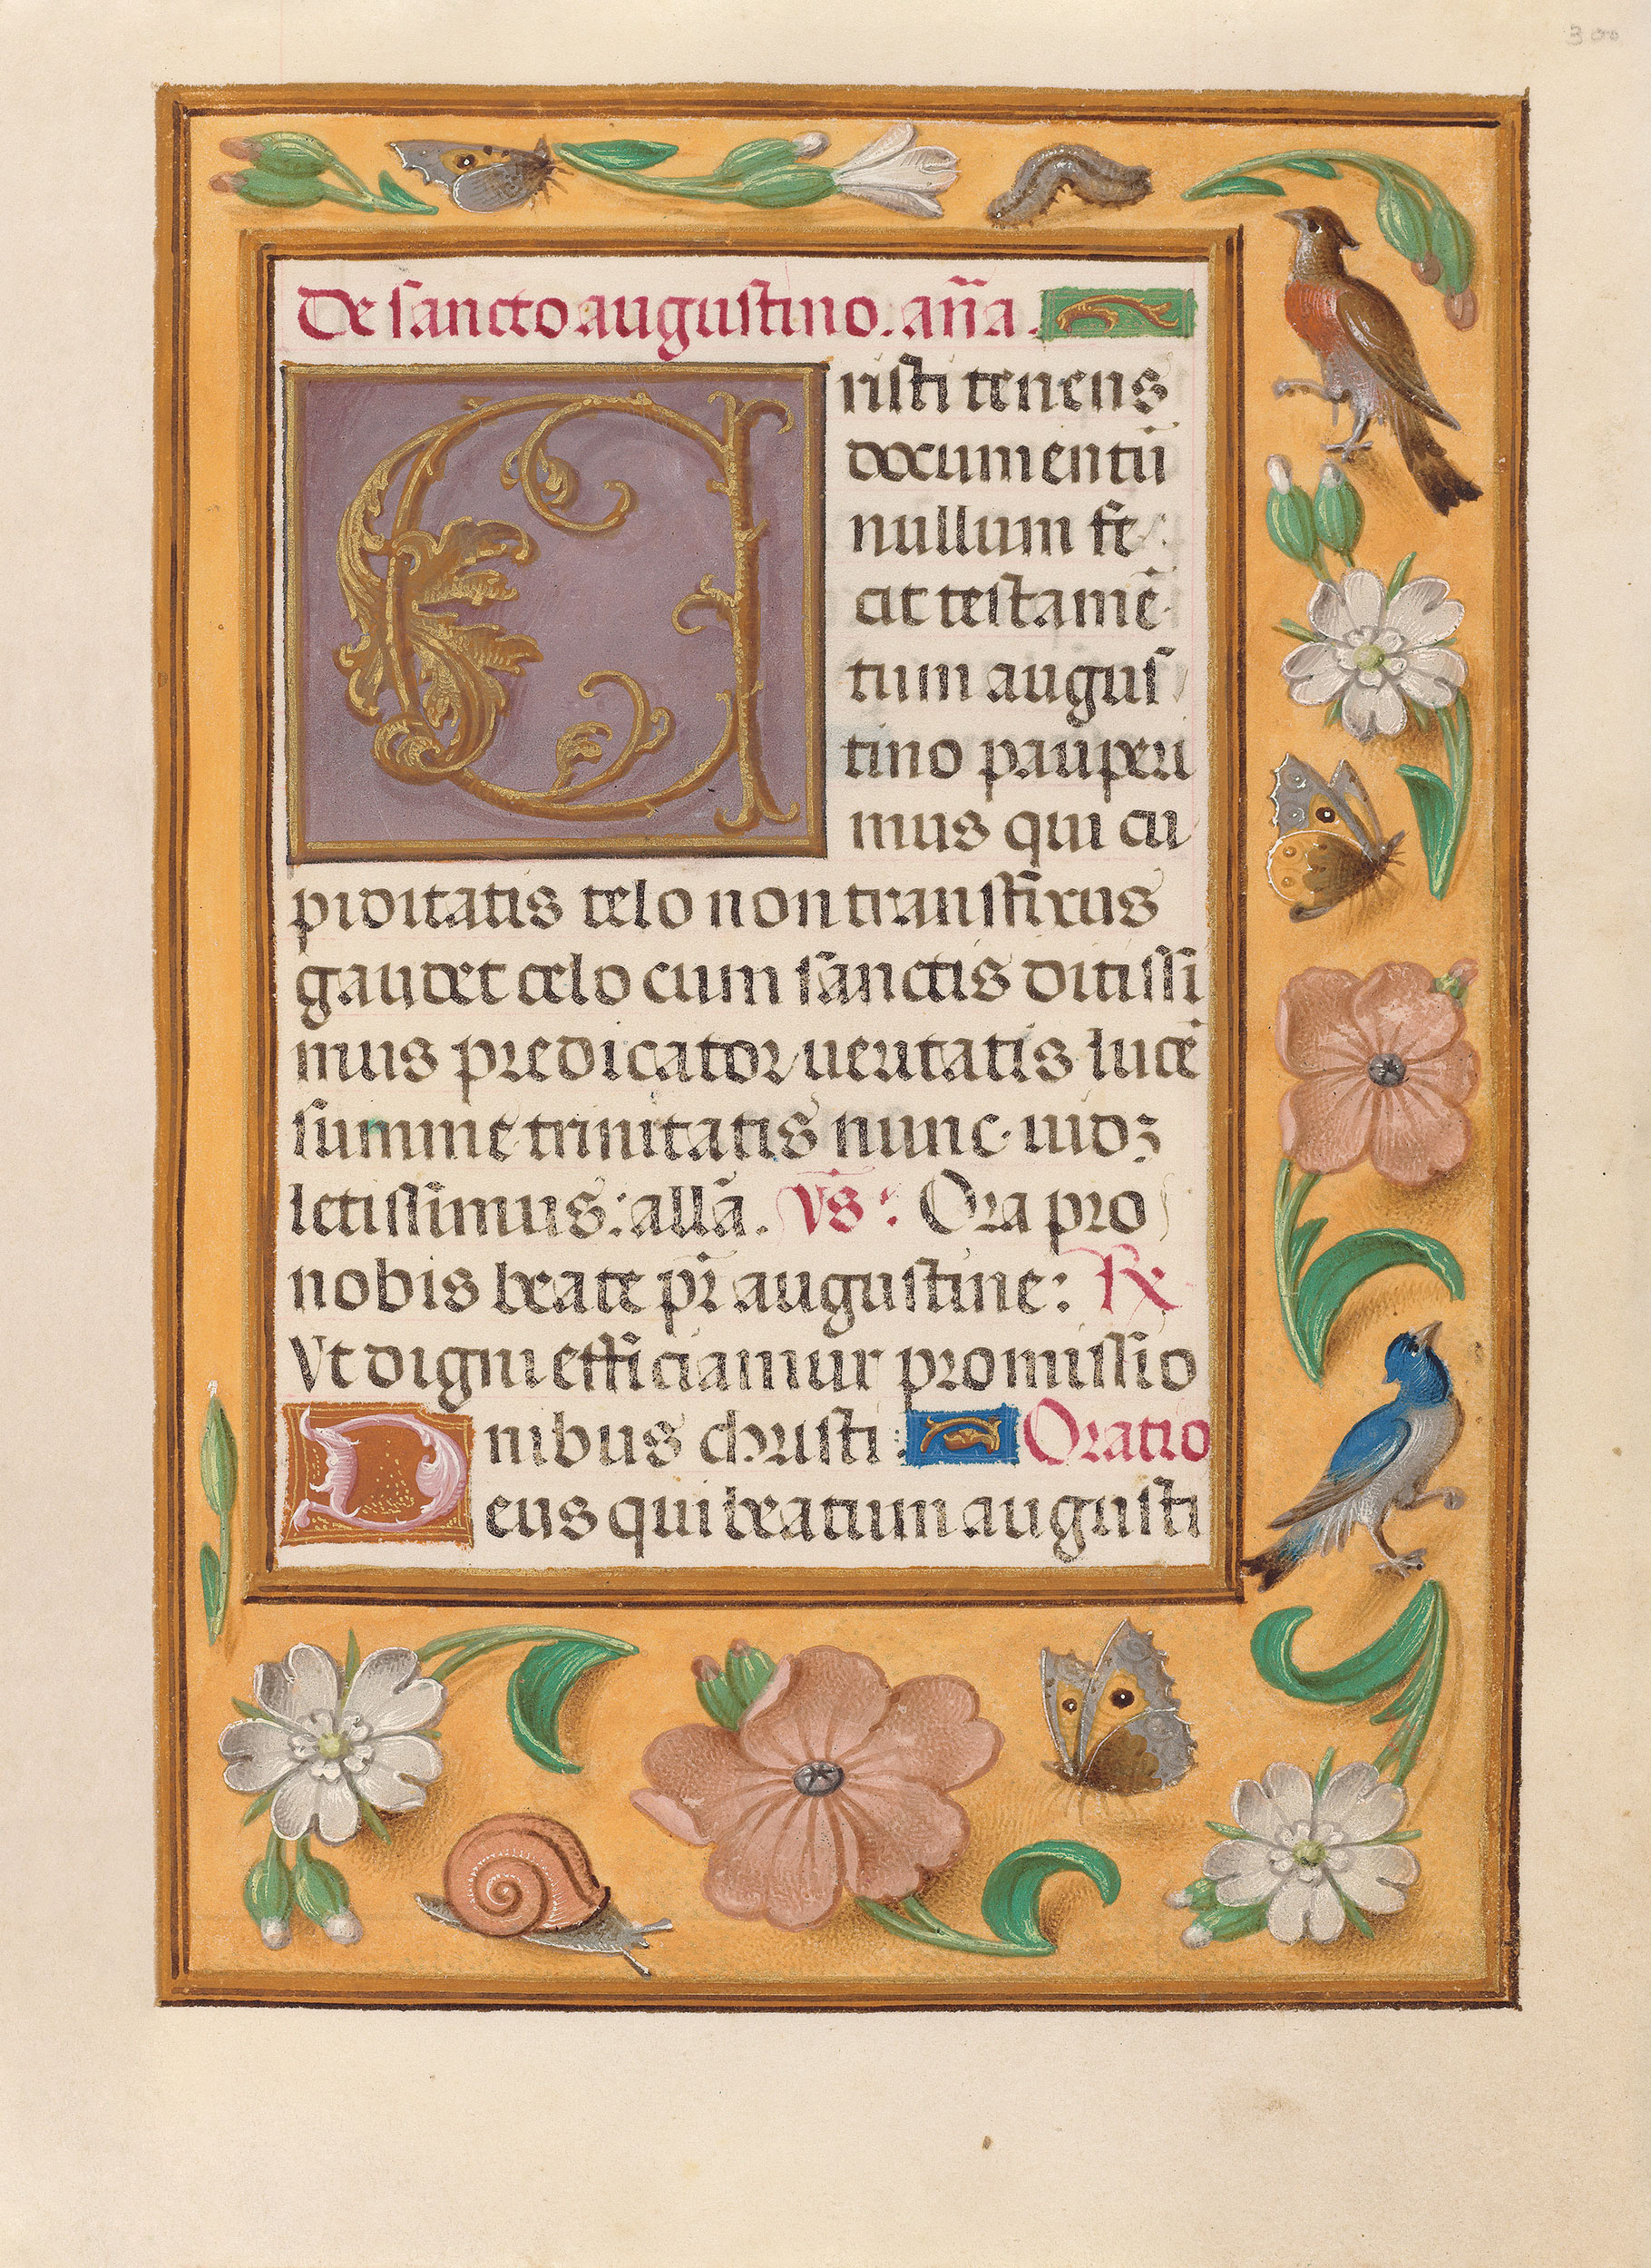 300
De sancto augustino. an̄a.
C risti tenens
documentū
nullum fe
cit testamē
tum augus
tino pauperi
mus qui cu
piditatis telo non transfixus
gaudet celo cum sanctis ditissi
mus predicator ueritatis lucē
summe trinitatis nunc uidꝫ
letissimus: allā. Vs: Ora pro
nobis beate pr̄ augustine: ℞
Vt digni efficiamur promissio
nibus christi: Oratio
Deus qui beatum augusti